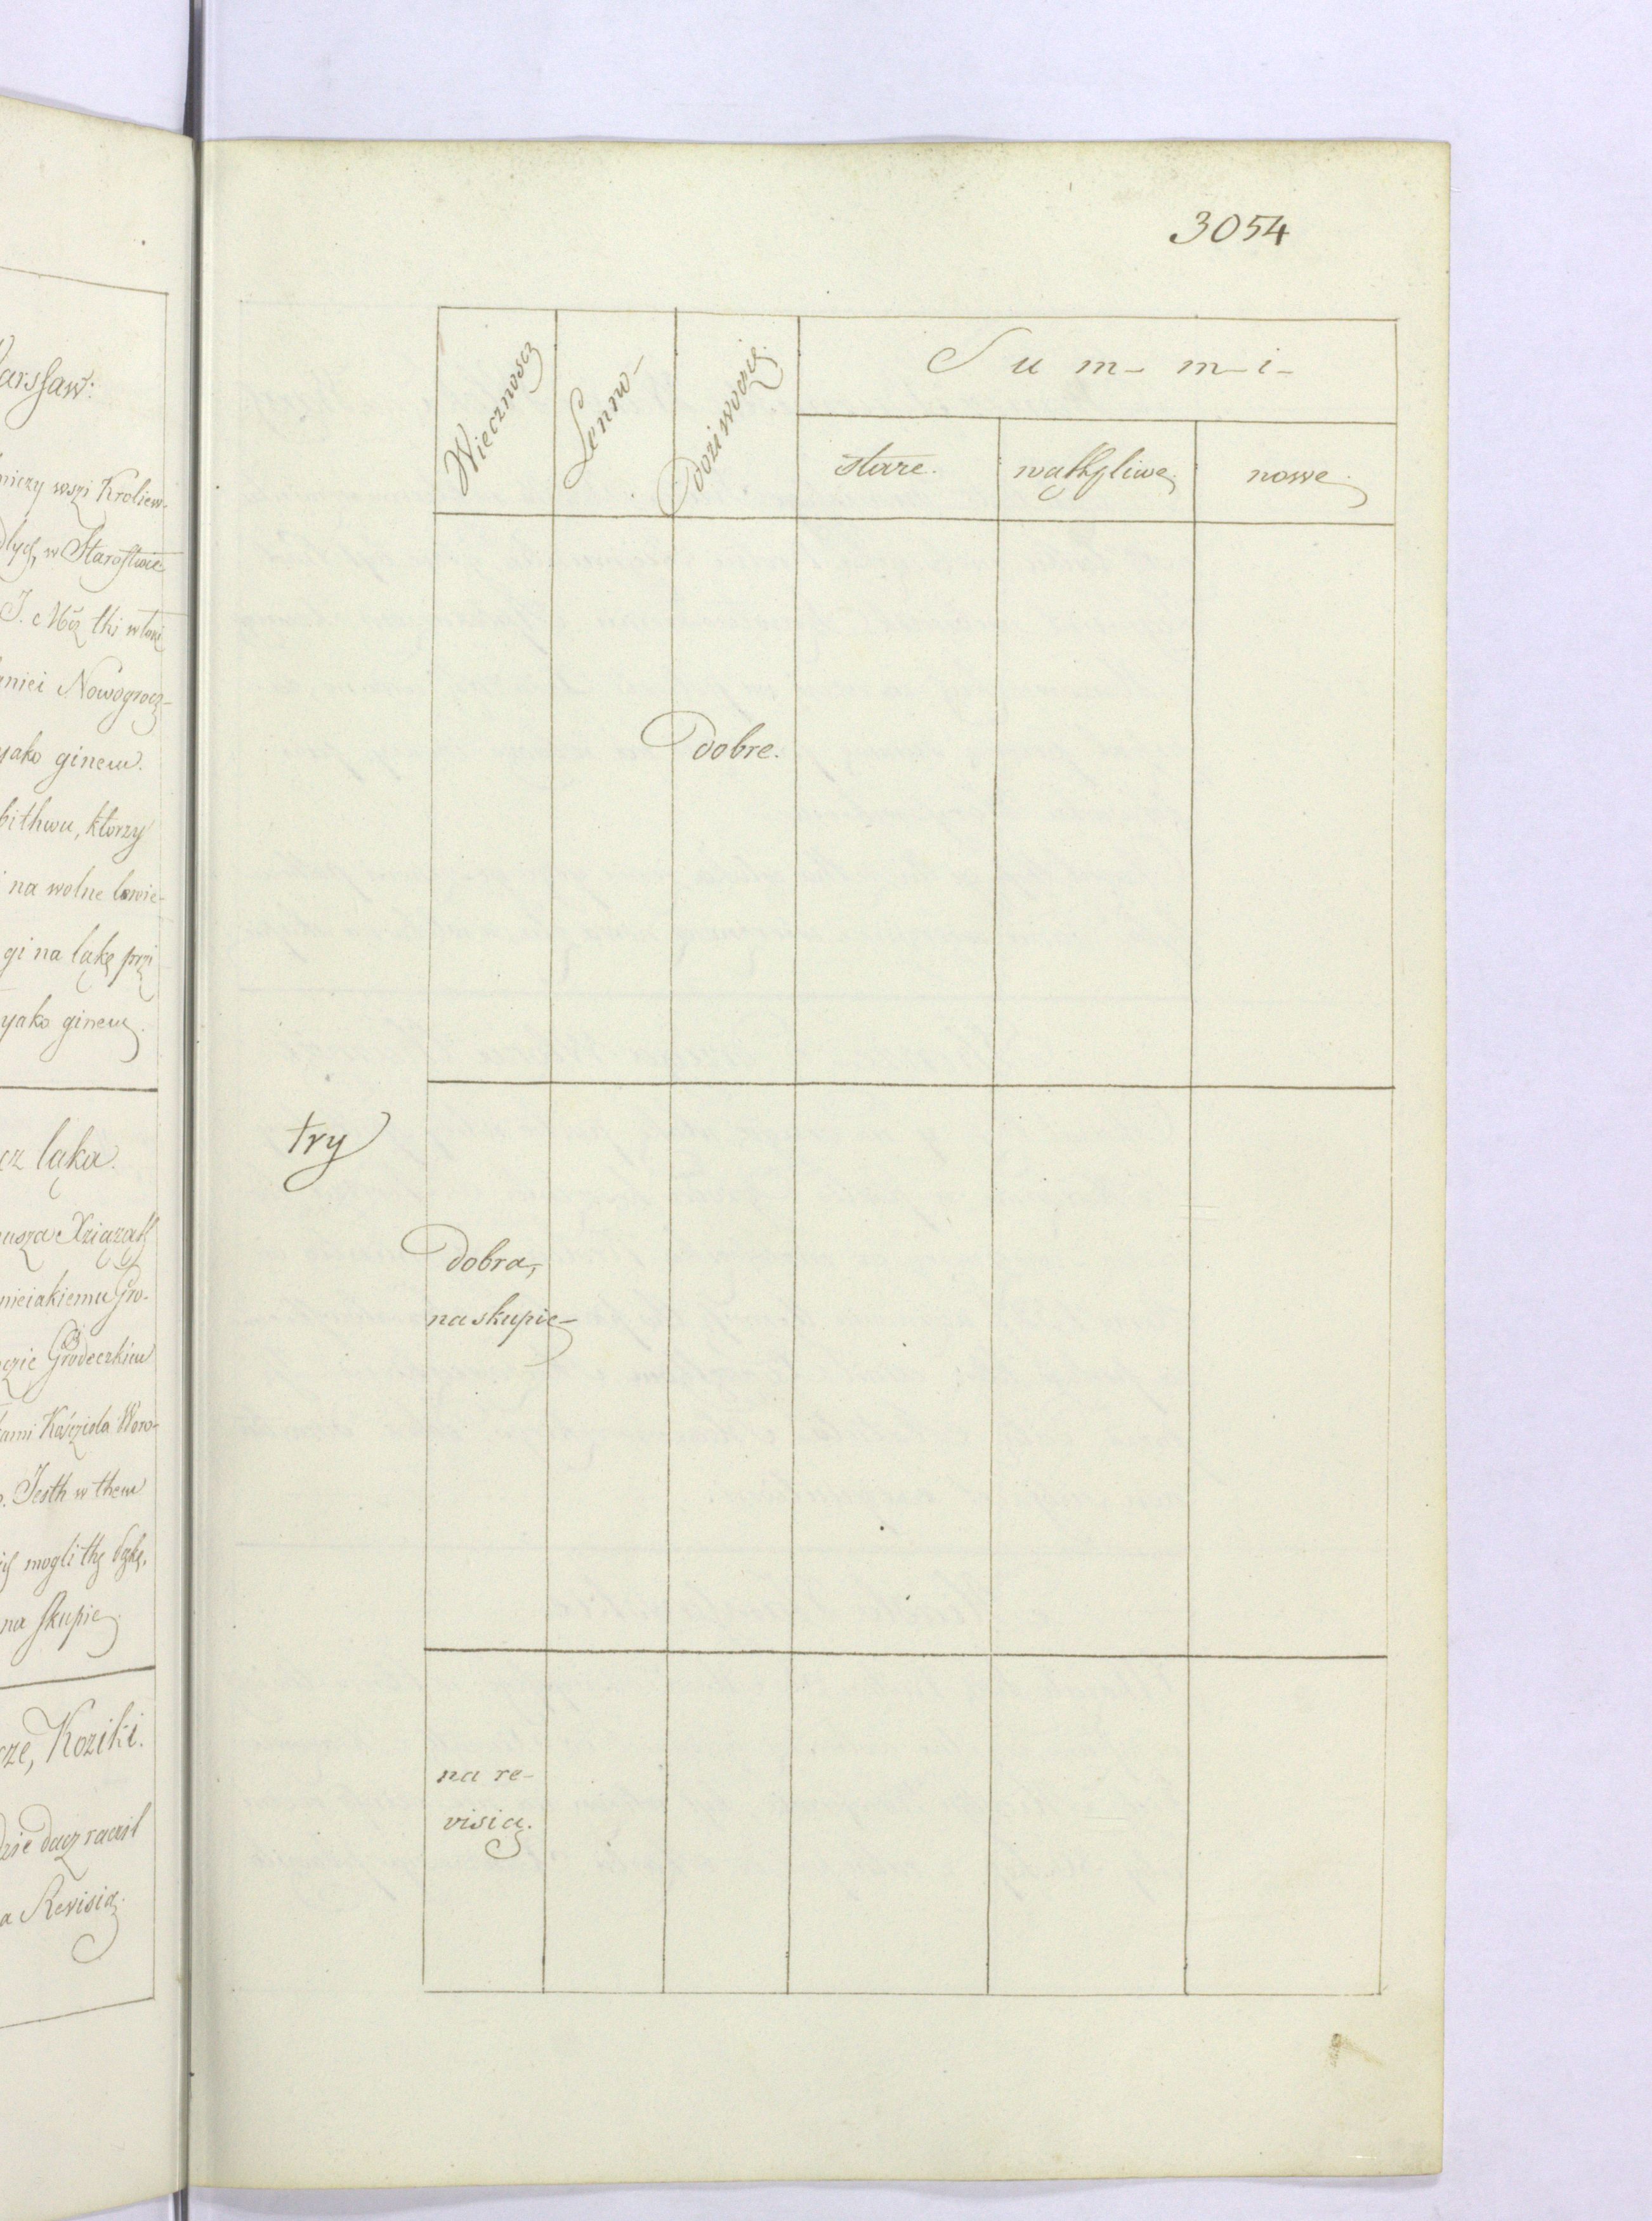 arssaw:
niczy wszi Kroliew-
w Starostwie
J. Mcz thi
niei Nowogrocz-
yako ginem.
bithwu, ktorzy
i na wolne lowie-
gi na ląkę przi
yako ginem.
cz ląka.
usza Xziązath
nieiakiemu Gro-
czie Grodeczkim
ami Koscziola Woro-
o. Jesth w them
mogli thę łąkę,
na skupie.
cze, Koziki.
dzie dacz raczil
a Revisią.
3054
Wiecznoscz
Lenno-
Doziwocie.
Su m- m-i-
stare.
wąthpliwe.
nowe.
dobre.
try
dobra,
na skupie-
na re-
visią.